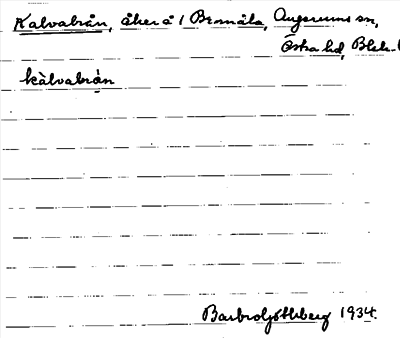 Kalvabrån, åker å 1 Bromåla, Augerums sn,
Östra hd, Blek.
kàlvabrån
Barbro Göthberg 1934.